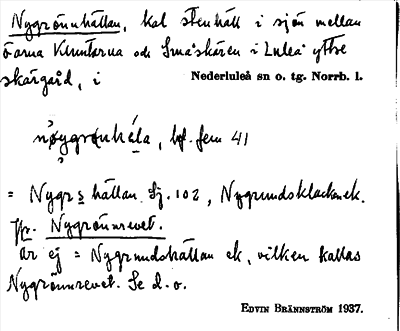 Nygrönnhällan, kal stenhäll i sjön mellan
öarna Kluntarna och Småskären i Luleå yttre
skärgård, i Nederluleå sn o. tg. Norrb. l.
bf. fem 41
= Nygrs hällan Sj. 102, Nygrundsklacken ek.
Jfr. Nygrönnrevet.
är ej = Nygrundshällan ek, vilken kallas
Nygrönnrevet. Se d. o.
Edvin Brännström 1937.